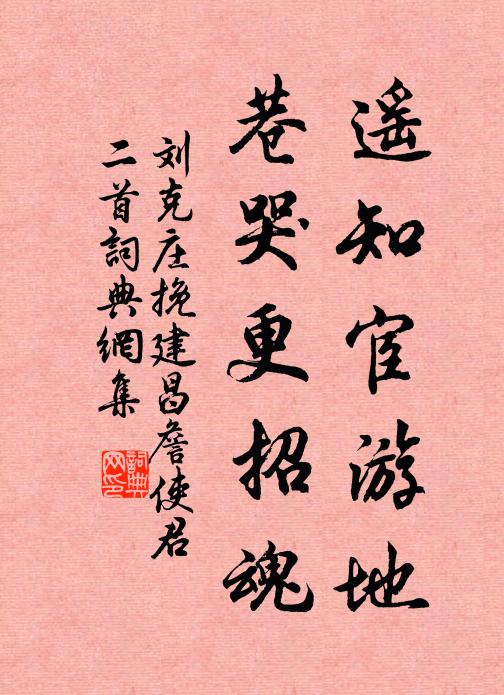 遥知宦游地
巷哭更招魂
刘克庄挽建昌詹使君
二首詞典網集
詞典
网印